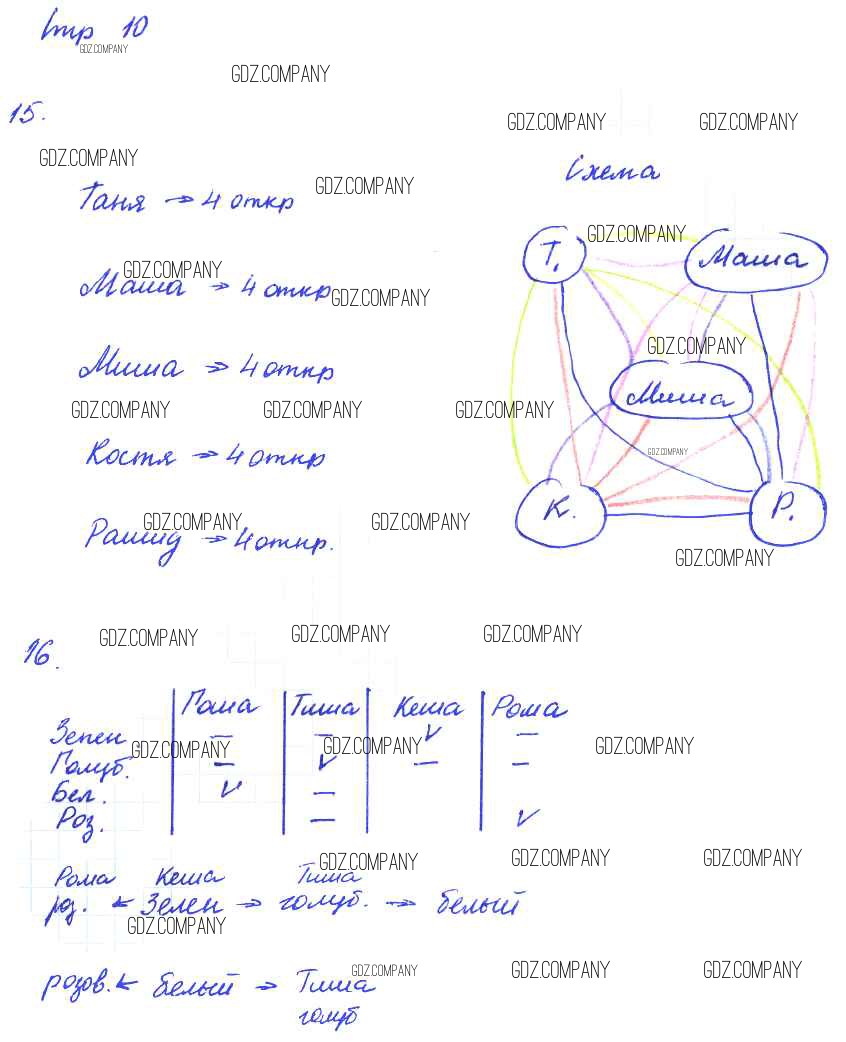 Стр 10
GDZ.COMPANY
GDZ.COMPANY
15.
GDZ.COMPANY GDZ.COMPANY
GDZ.COMPANY
Схема
GDZ.COMPANY
Таня → 4 откр
Т. GDZ.COMPANY Маша
GDZ.COMPANY
Маша → 4 откр GDZ.COMPANY
GDZ.COMPANY
Миша → 4 откр
Миша
GDZ.COMPANY GDZ.COMPANY GDZ.COMPANY
Костя → 4 откр
GDZ.COMPANY
К. Р.
GDZ.COMPANY GDZ.COMPANY
Рашид → 4 откр.
GDZ.COMPANY
16.
GDZ.COMPANY GDZ.COMPANY GDZ.COMPANY
Гоша Тиша Кеша Рома
Зелен — — V —
GDZ.COMPANY GDZ.COMPANY GDZ.COMPANY
Голуб. — V — —
Бел. V —
Роз. — V
GDZ.COMPANY GDZ.COMPANY GDZ.COMPANY
Рома Кеша Тиша
роз. ← Зелен → голуб. → белый
GDZ.COMPANY
GDZ.COMPANY GDZ.COMPANY GDZ.COMPANY
розов. ← белый → Тиша
голуб